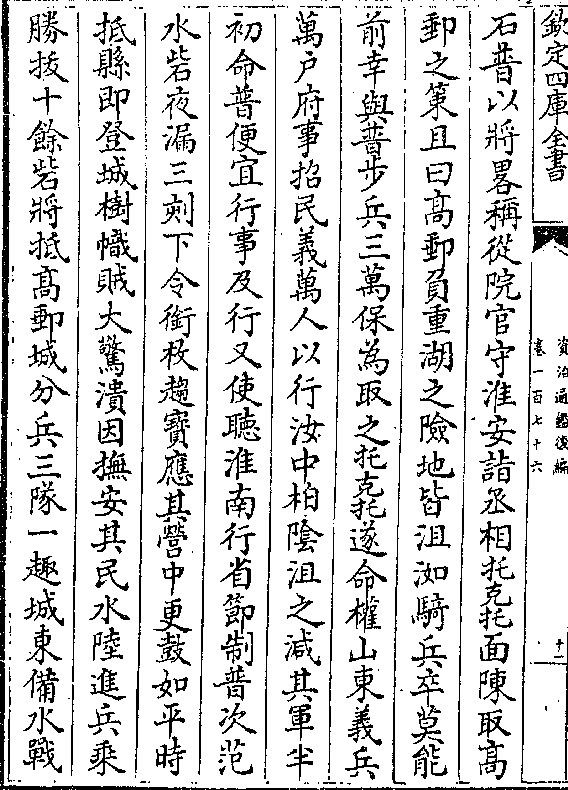 欽定四庫全書
資治通鑑後編
卷一百七十六
十二
石普以將畧稱從院官守淮安詣丞相托克托面陳取高
郵之策且曰高郵負重湖之險地皆沮洳騎兵卒莫能
前幸與普步兵三萬保為取之托克托遂命權山東義兵
萬户府事招民義萬人以行汝中柏陰沮之減其軍半
初命普便宜行事及行又使聽淮南行省節制普次范
水砦夜漏三刻下令銜枚趨寶應其營中更鼓如平時
抵縣即登城樹幟賊大驚潰因撫安其民水陸進兵乘
勝拔十餘砦將抵高郵城分兵三隊一趣城東備水戰